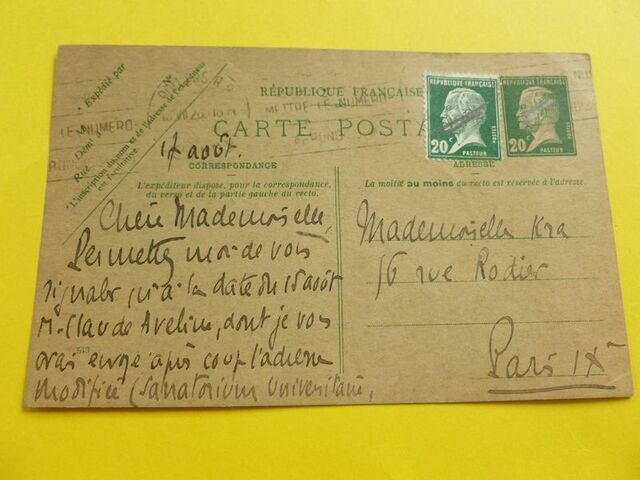 Expédié par
M
Demt à
Rue
N°
L'inscription du nom et de l'adresse de l'expéditeur
est facultative.
LE NUMERO
METTRE LE NUMERO
RÉPUBLIQUE FRANÇAISE
CARTE POSTA
RÉPUBLIQUE FRANÇAISE
20c
POSTES
PASTEUR
RÉPUBLIQUE FRANÇAISE
20c
POSTES
PASTEUR
17 août.
CORRESPONDANCE
ADRESSE
L'expéditeur dispose, pour la correspondance,
du verso et de la partie gauche du recto.
La moitié au moins du recto est réservée à l'adresse.
Chère Mademoiselle,
Permettez moi de vous
signaler qu'à la date du 15 août
M. Claude Aveline, dont je vous
avais envoyé après coup l'adresse
modifiée (Sanatorium Universitaire,
Mademoiselle Kra
16 rue Rodier
Paris IXe